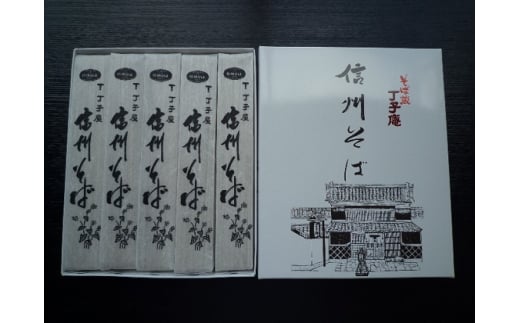 丁子庵
信州そば
丁子庵
信州そば
丁子庵
信州そば
丁子庵
信州そば
丁子庵
信州そば
丁子庵
信州そば